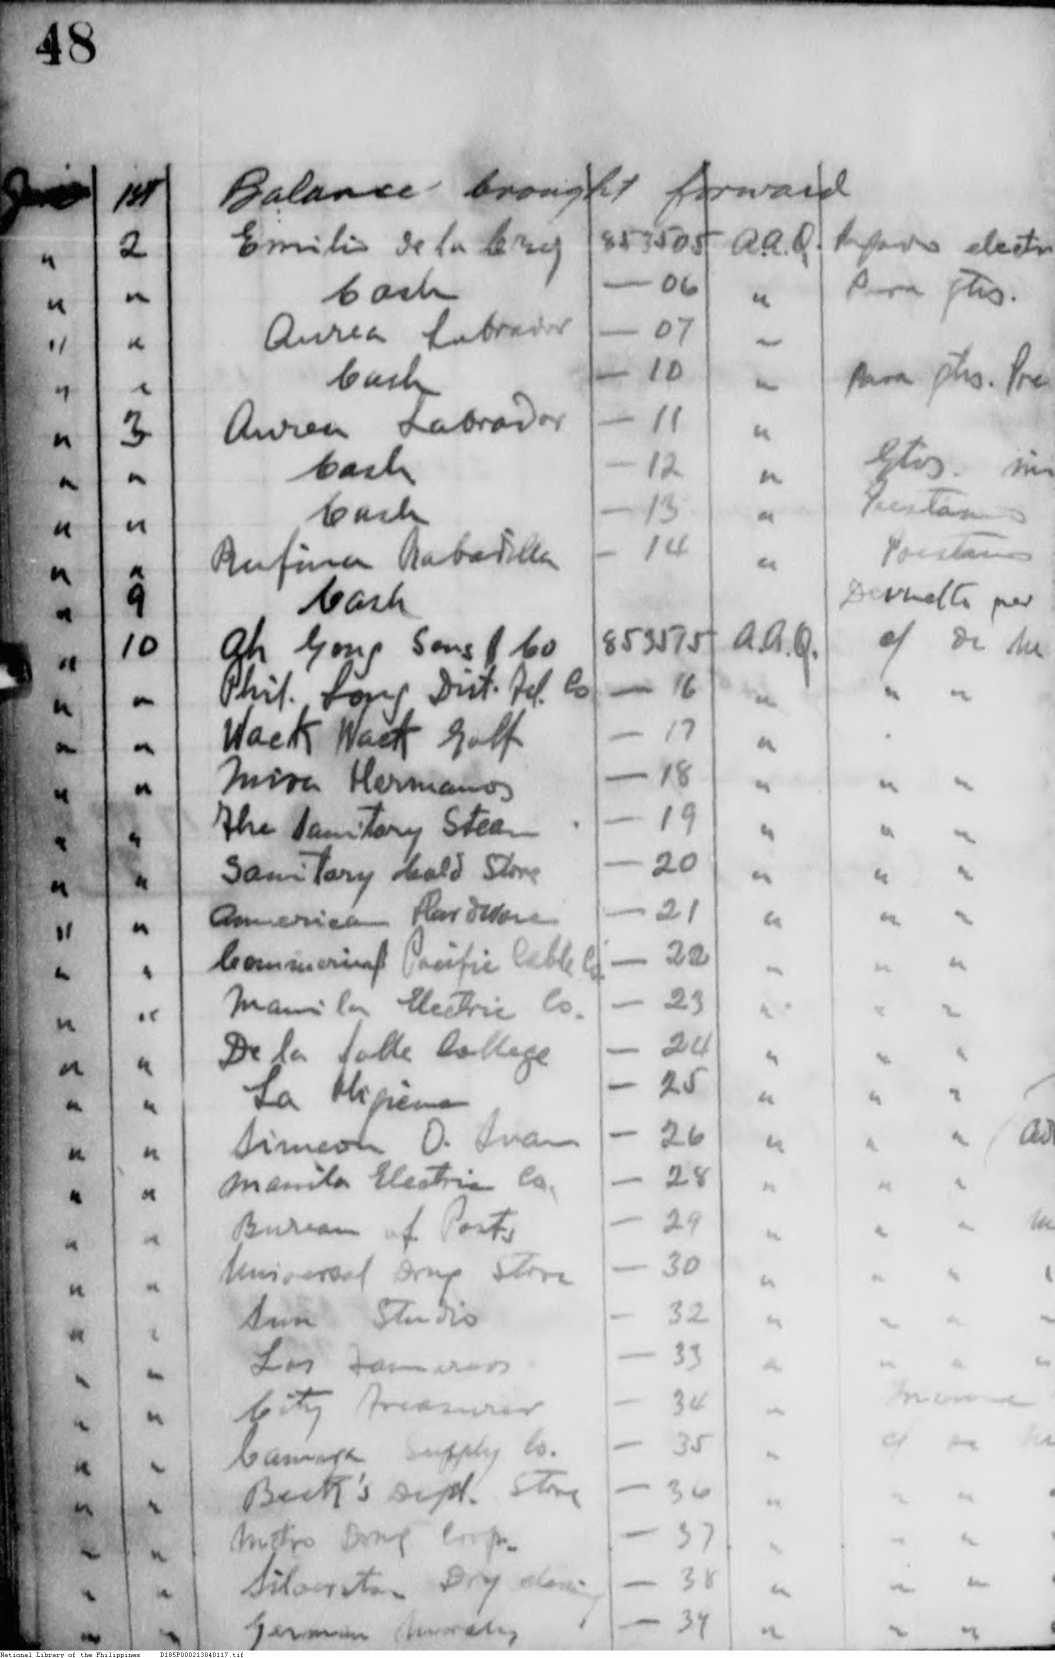 48
June 1st Balance brought forward
" 2 Emilio de la Cruz 853505 A.A.Q. electr
" " Cash — 06 " Para gts.
" " Aurea Labrador — 07 "
" " Cash — 10 " Para gts. Pre
" 3 Aurea Labrador — 11 "
" " Cash — 12 " Gtos.
" " Cash — 13 " Prestamo
" " Rufina Rabadilla — 14 " Prestamo
" 9 Cash Devuelto per
" 10 Ah Gong Sons & Co 853515 A.A.Q. cf de
" " Phil. Long Dist. Tel. Co — 16 " " "
" " Wack Wack Golf — 17 "
" " Mira Hermanos — 18 " " "
" " The Sanitary Steam — 19 " " "
" " Sanitary Cold Store — 20 " " "
" " American Hardware — 21 " " "
" " Commercial Pacific Cable Co — 22 " " "
" " Manila Electric Co. — 23 " " "
" " De la Salle College — 24 " " "
" " La Higiena — 25 " " "
" " Simeon O. Ivan — 26 " " "
" " Manila Electric Co. — 28 " " "
" " Bureau of Posts — 29 " " "
" " Universal Drug Store — 30 " " "
" " Sun Studio — 32 " " "
" " Los Tamaraos — 33 " " "
" " City Treasurer — 34 "
" " Supply Co. — 35 "
" " Beck's Dept. Store — 36 " " "
" " Metro Drug Corp. — 37 " " "
" " Silverston Dry — 38 " " "
" " German — 39 " " "
National Library of the Philippines D185P000213040117.tif